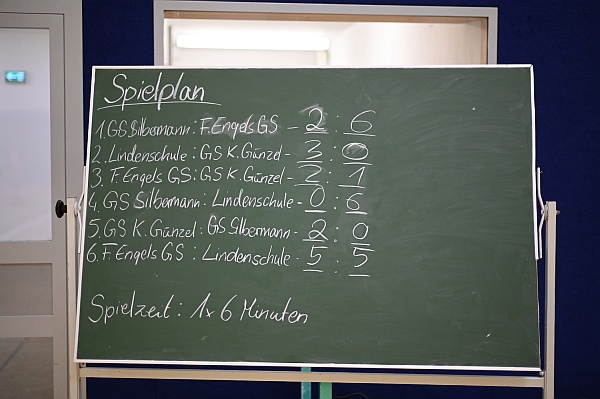 Spielplan
1. GS Silbermann : F. Engels GS - 2 : 6
2. Lindenschule : GS K. Günzel - 3 : 0
3. F. Engels GS : GS K. Günzel - 2 : 1
4. GS Silbermann : Lindenschule - 0 : 6
5. GS K. Günzel : GS Silbermann - 2 : 0
6. F. Engels GS : Lindenschule - 5 : 5
Spielzeit : 1x 6 Minuten